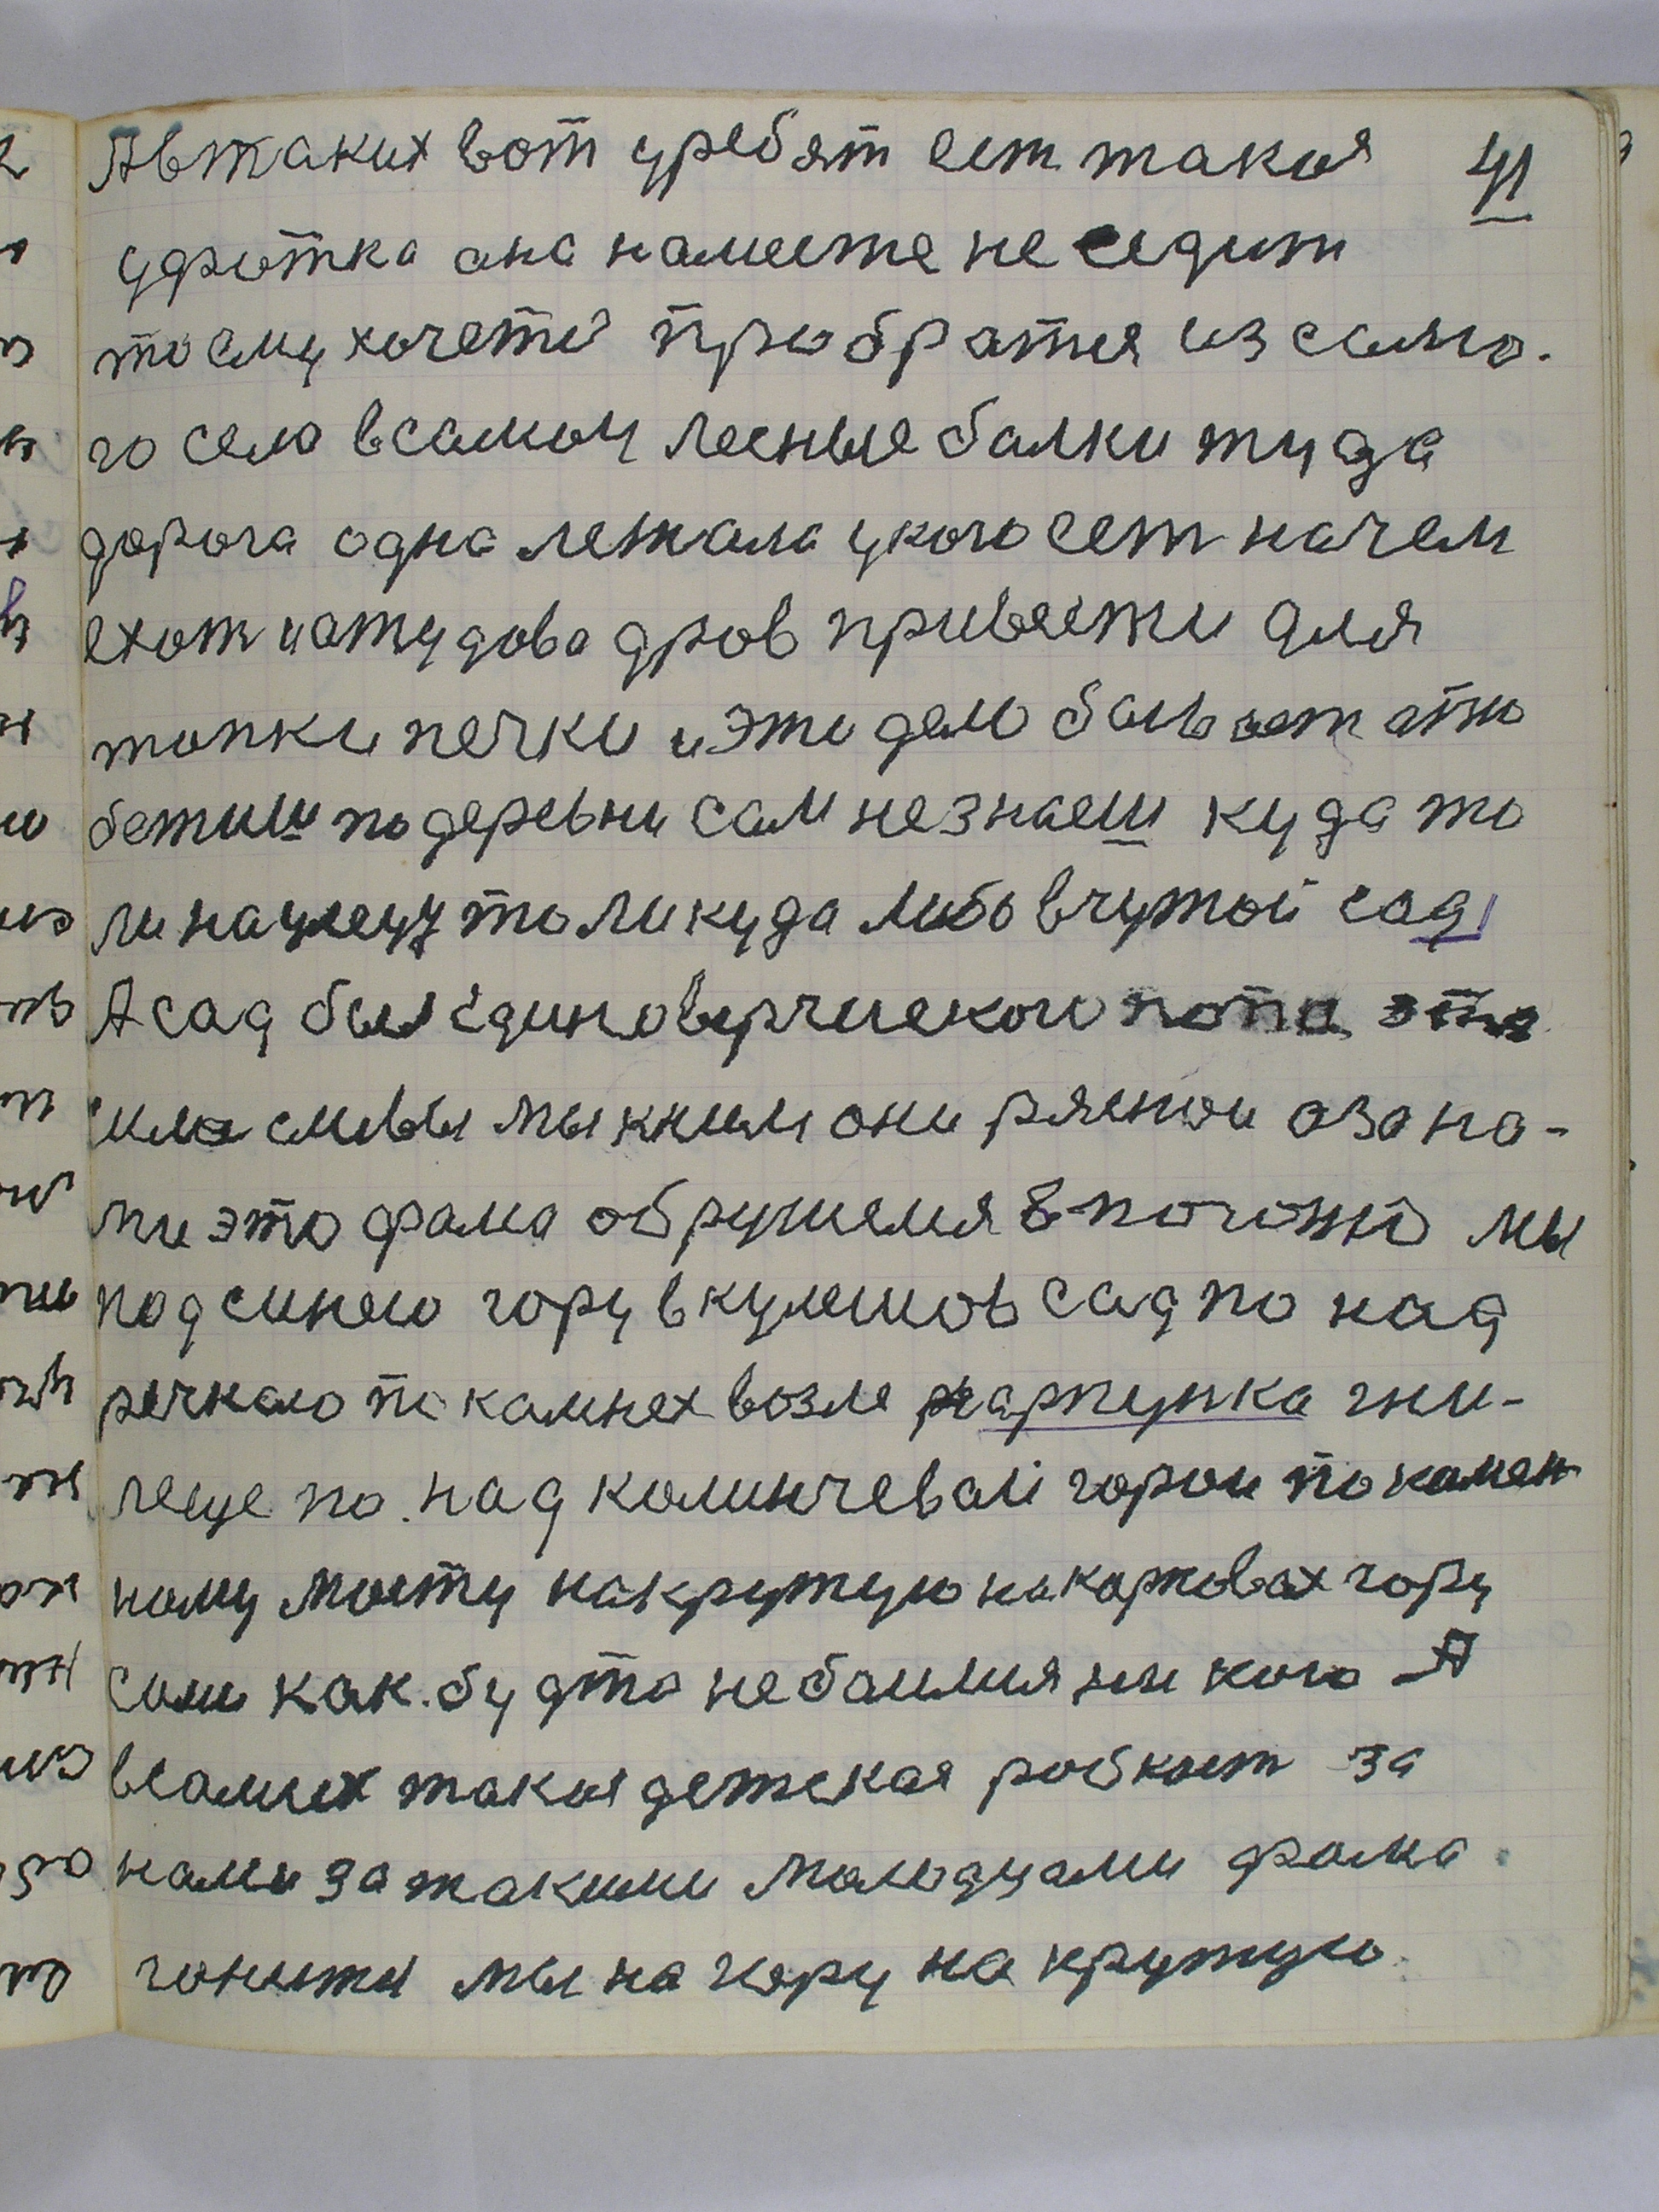 А в таких вот у ребят ест такая 41
уфрытка она на месте не седит
то ему хочеть пробратся из само-
го села в самои лесные балки туда
дорога одна лежала у кого ест на чем
ехоть и оттудова дров привести для
топки печки и эти дело бывает
бежиш по деревни сам не знаеш куда то
ли на улецу то ли куда либо в чужой сад
А сад был единоверческого попа это
мы к ним они рясной оза на-
ми это фама обрушился в погоню мы
под синею гору в кулешов сад по над
речкаю по камнях возле карпунка гни-
леще по над калинчевай горои по камен
ному мосту на крутую на карповах гору
сами как будто не баимся ни кого А
в самих такая детская робкост за
нами за такими молодцами фама
гонитя мы на гору на крутую